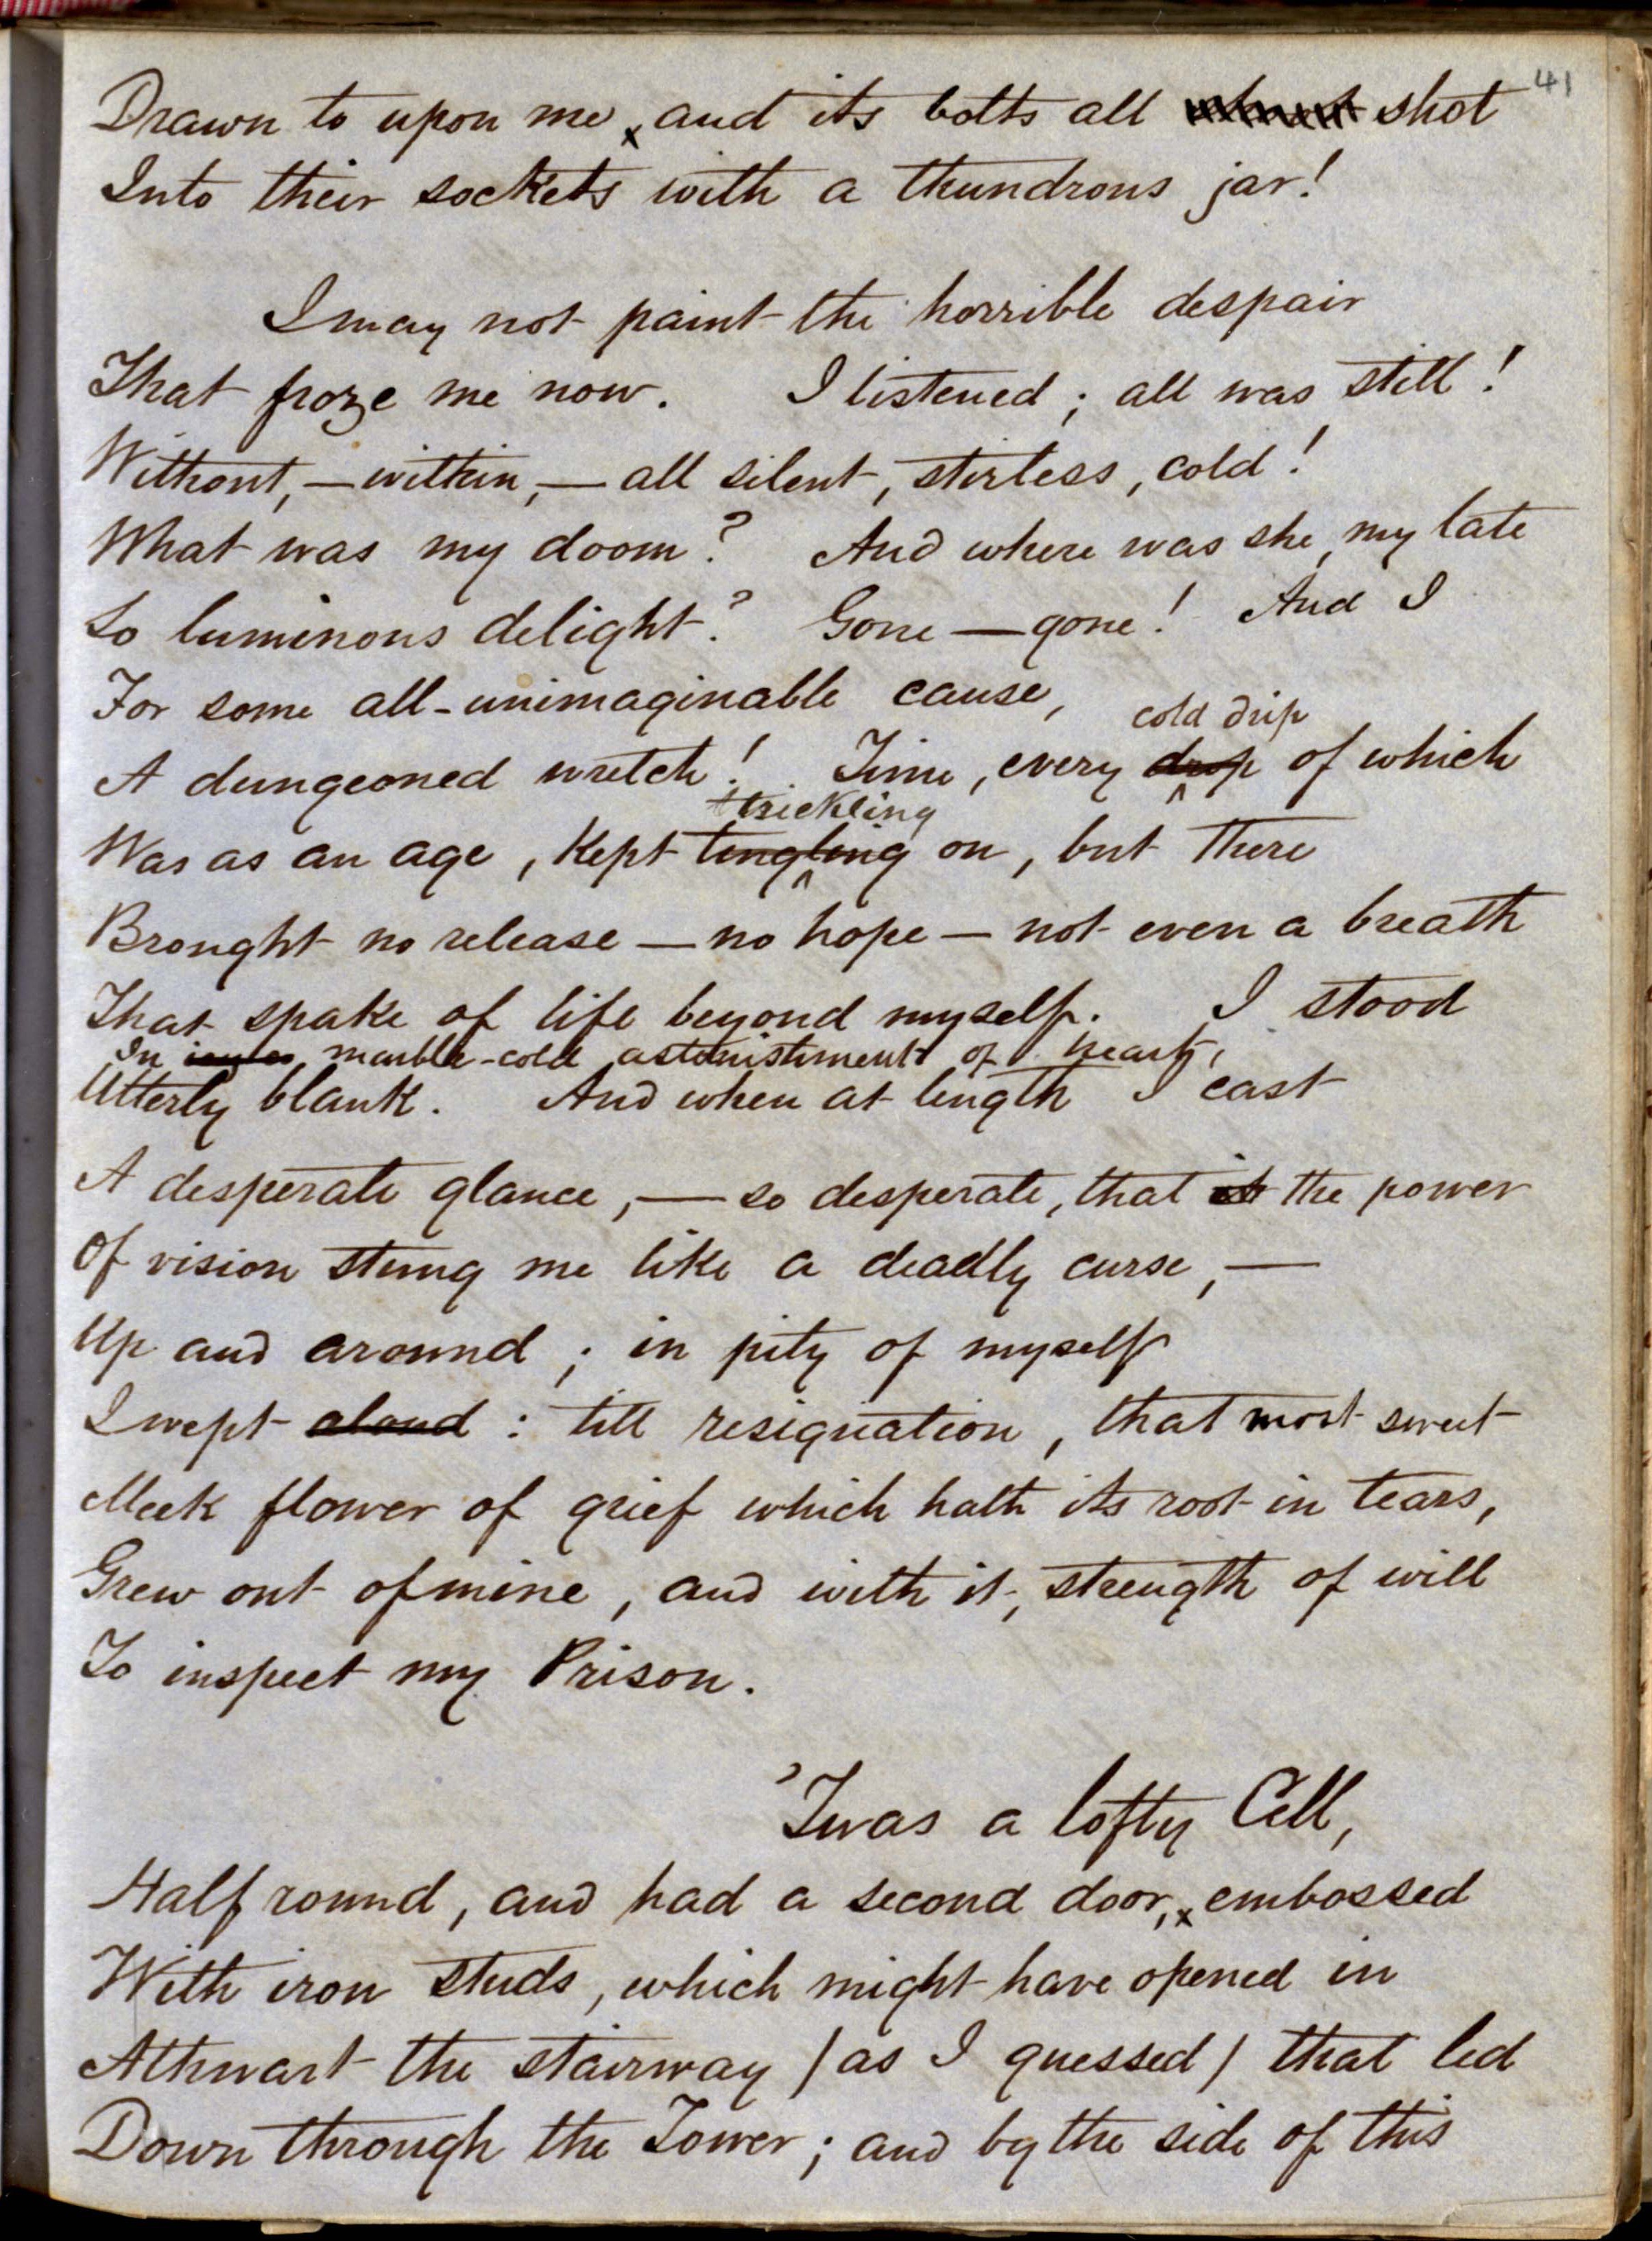 41
Drawn to upon me, and its bolts all shot
Into their sockets with a thundrous jar!
I may not paint the horrible despair
That froze me now. I listened; all was still!
Without, — within, — all silent, stirless, cold!
What was my doom? And where was she, my late
So luminous delight? Gone — gone! And I
For some all-unimaginable cause,
cold drip
A dungeoned wretch! Time, every drop of which
trickling
Was as an age, kept tingling on, but there
Brought no release — no hope — not even a breath
That spake of life beyond myself. I stood
In marble-cold astonishment of heart,
Utterly blank. And when at length I cast
A desperate glance, — so desperate, that the power
Of vision stung me like a deadly curse, —
Up and around; in pity of myself
I wept aloud: till resignation, that most sweet
Meek flower of grief which hath its root in tears,
Grew out of mine, and with it, strength of will
To inspect my Prison.
'Twas a lofty Cell,
Half round, and had a second door, embossed
With iron studs, which might have opened in
Athwart the stairway (as I guessed) that led
Down through the Tower; and by the side of this